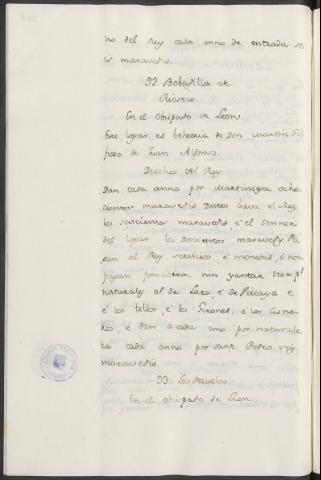 no del Rey cada anno de entrada se
is maravedis.
92. Bobadilla de
Rioseco.
En el Obispado de Leon.
Este logar es behetria de Don Martin Gil
fijo de Juan Alfonso
Derechos del Rey.
Dan cada anno por martiniega ocho
cientos maravedis. Destos lieva el Rey
los seiscientos maravedis, é el sennor
del logar los doscientos maravedis. Pa
gan al Rey servicios, é monedas, é non
pagan fonsadera, nin yantar. Han pr
naturales al de Lara, é de Vizcaya e
é los tellos, é los Girones, é los
é dan a cada uno por naturale
za cada anno por sant Pedro
maravedis.
93.
En el Obispado de Leon